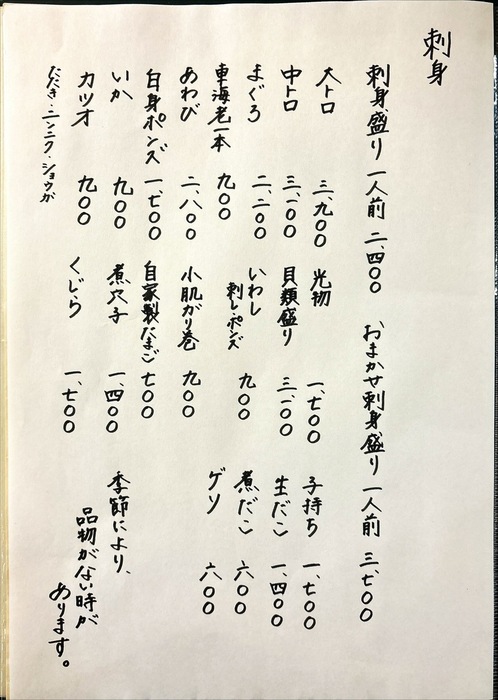 刺身
刺身盛り 一人前 二、四〇〇
おまかせ刺身盛り 一人前 三、七〇〇
大トロ 三、九〇〇
中トロ 三、一〇〇
まぐろ 二、二〇〇
車海老一本 九〇〇
あわび 二、八〇〇
白身ポンズ 一、七〇〇
いか 九〇〇
カツオ 九〇〇
たたき・ニンニク・ショウガ
光物 一、七〇〇
貝類盛り 三、一〇〇
いわし 九〇〇
刺し・ポンズ
小肌がり巻 九〇〇
自家製たまご 七〇〇
煮穴子 一、四〇〇
くじら 一、七〇〇
子持ち 一、七〇〇
生だこ 一、四〇〇
煮だこ 六〇〇
ゲソ 六〇〇
季節により、
品物がない時が
あります。